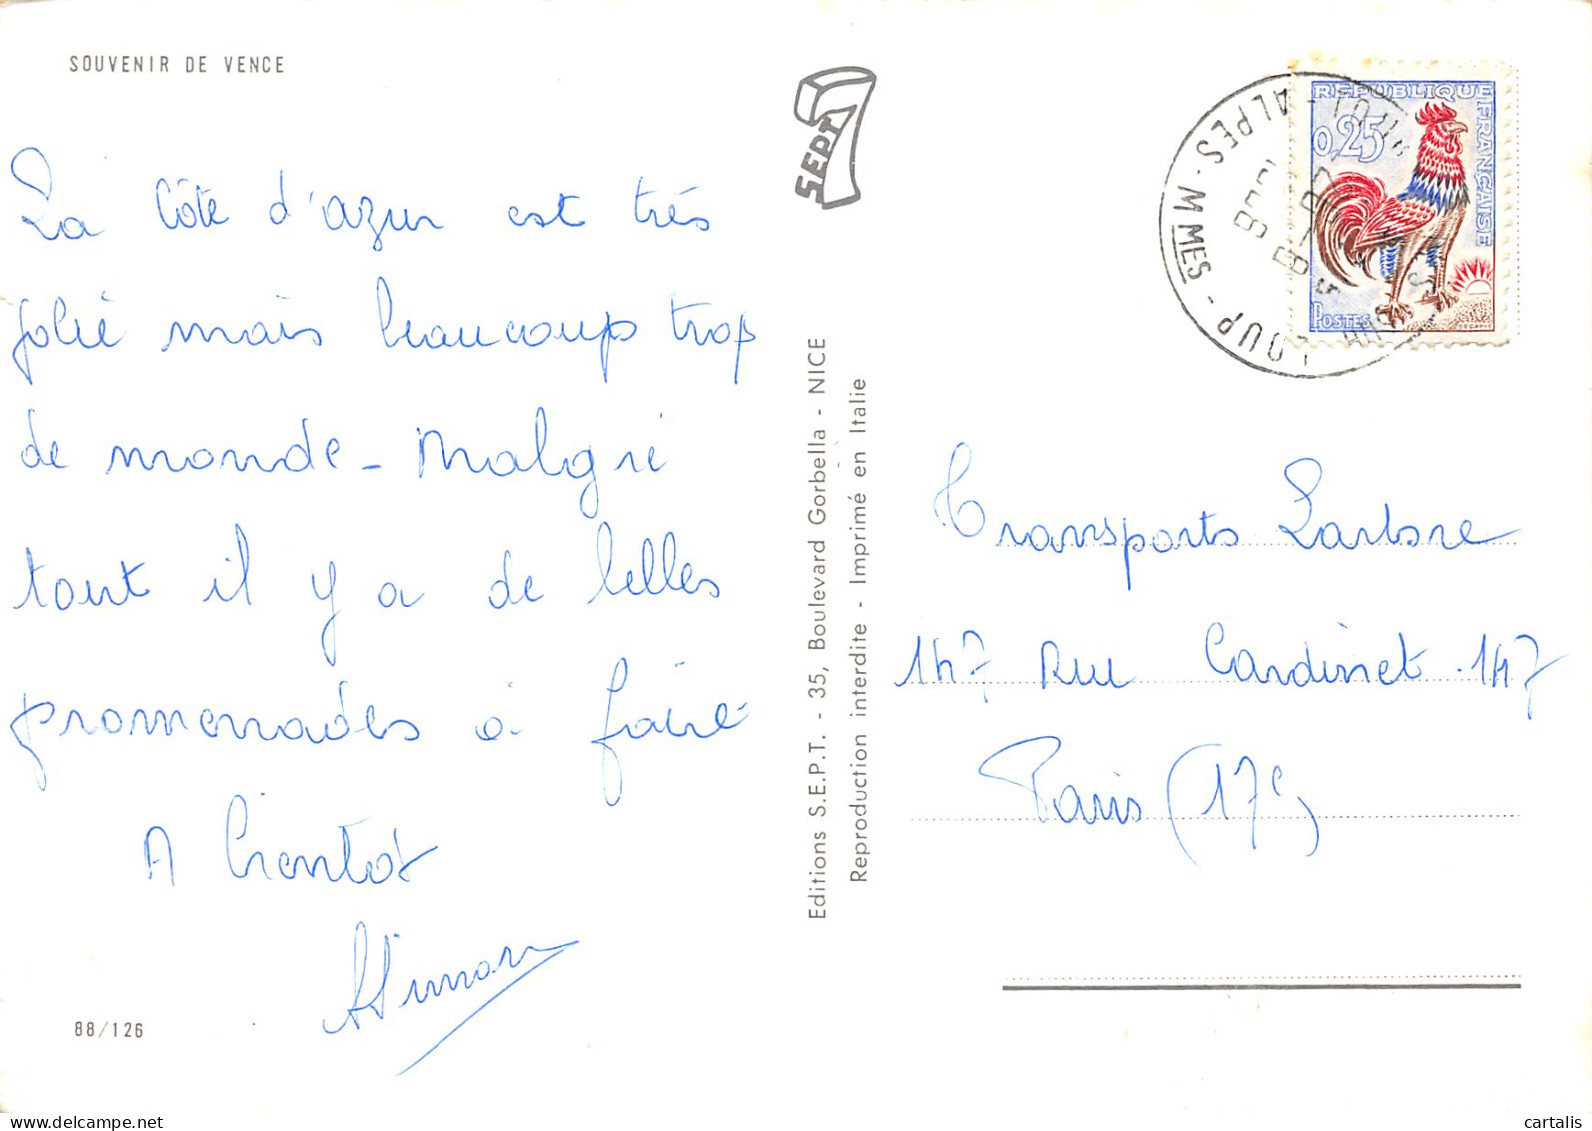 SOUVENIR DE VENCE
SEPT 7
La Côte d'azur est très
jolie mais beaucoup trop
de monde - Malgré
tout il y a de belles
promenades à faire
A bientôt
88/126
Editions S.E.P.T. - 35, Boulevard Gorbella - NICE
Reproduction interdite - Imprimé en Italie
REPUBLIQUE FRANÇAISE
0,25
POSTES
DECARIS
LOUP - ALPES-MMES
Transports Larbre
147 Rue Cardinet 147
Paris (17e)
cartalis